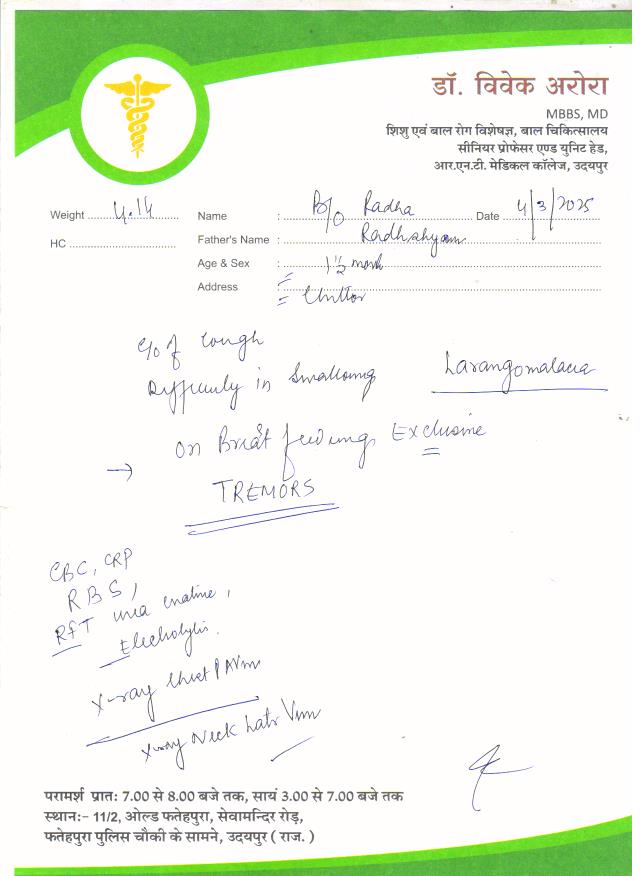 डॉ. विवेक अरोरा
MBBS, MD
शिशु एवं बाल रोग विशेषज्ञ, बाल चिकित्सालय
सीनियर प्रोफेसर एण्ड युनिट हेड,
आर.एन.टी. मेडिकल कॉलेज, उदयपुर
Weight 4.14 Name : B/O Radha Date 4/3/2025
HC Father's Name : Radhshyam
Age & Sex : 1 1/2 month
Address : Chittor
C/O of Cough
Difficulty in Swallowing Larangomalacia
On Breast feedings Exclusive
→ TREMORS
CBC, CRP
RBS,
RFT urea creatine,
Electrolytis.
X-ray Chest PA View
X-ray Neck Latr View
परामर्श प्रात: 7.00 से 8.00 बजे तक, सायं 3.00 से 7.00 बजे तक
स्थान:- 11/2, ओल्ड फतेहपुरा, सेवामन्दिर रोड़,
फतेहपुरा पुलिस चौकी के सामने, उदयपुर ( राज. )